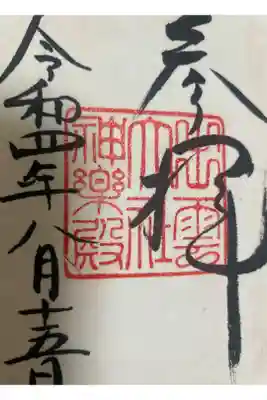 参拝
出雲
大社
神樂殿
令和四年八月十五日